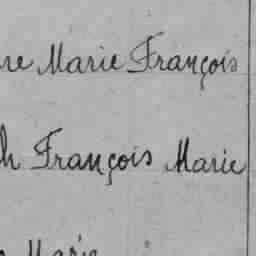 re Marie François
h François Marie
Marie